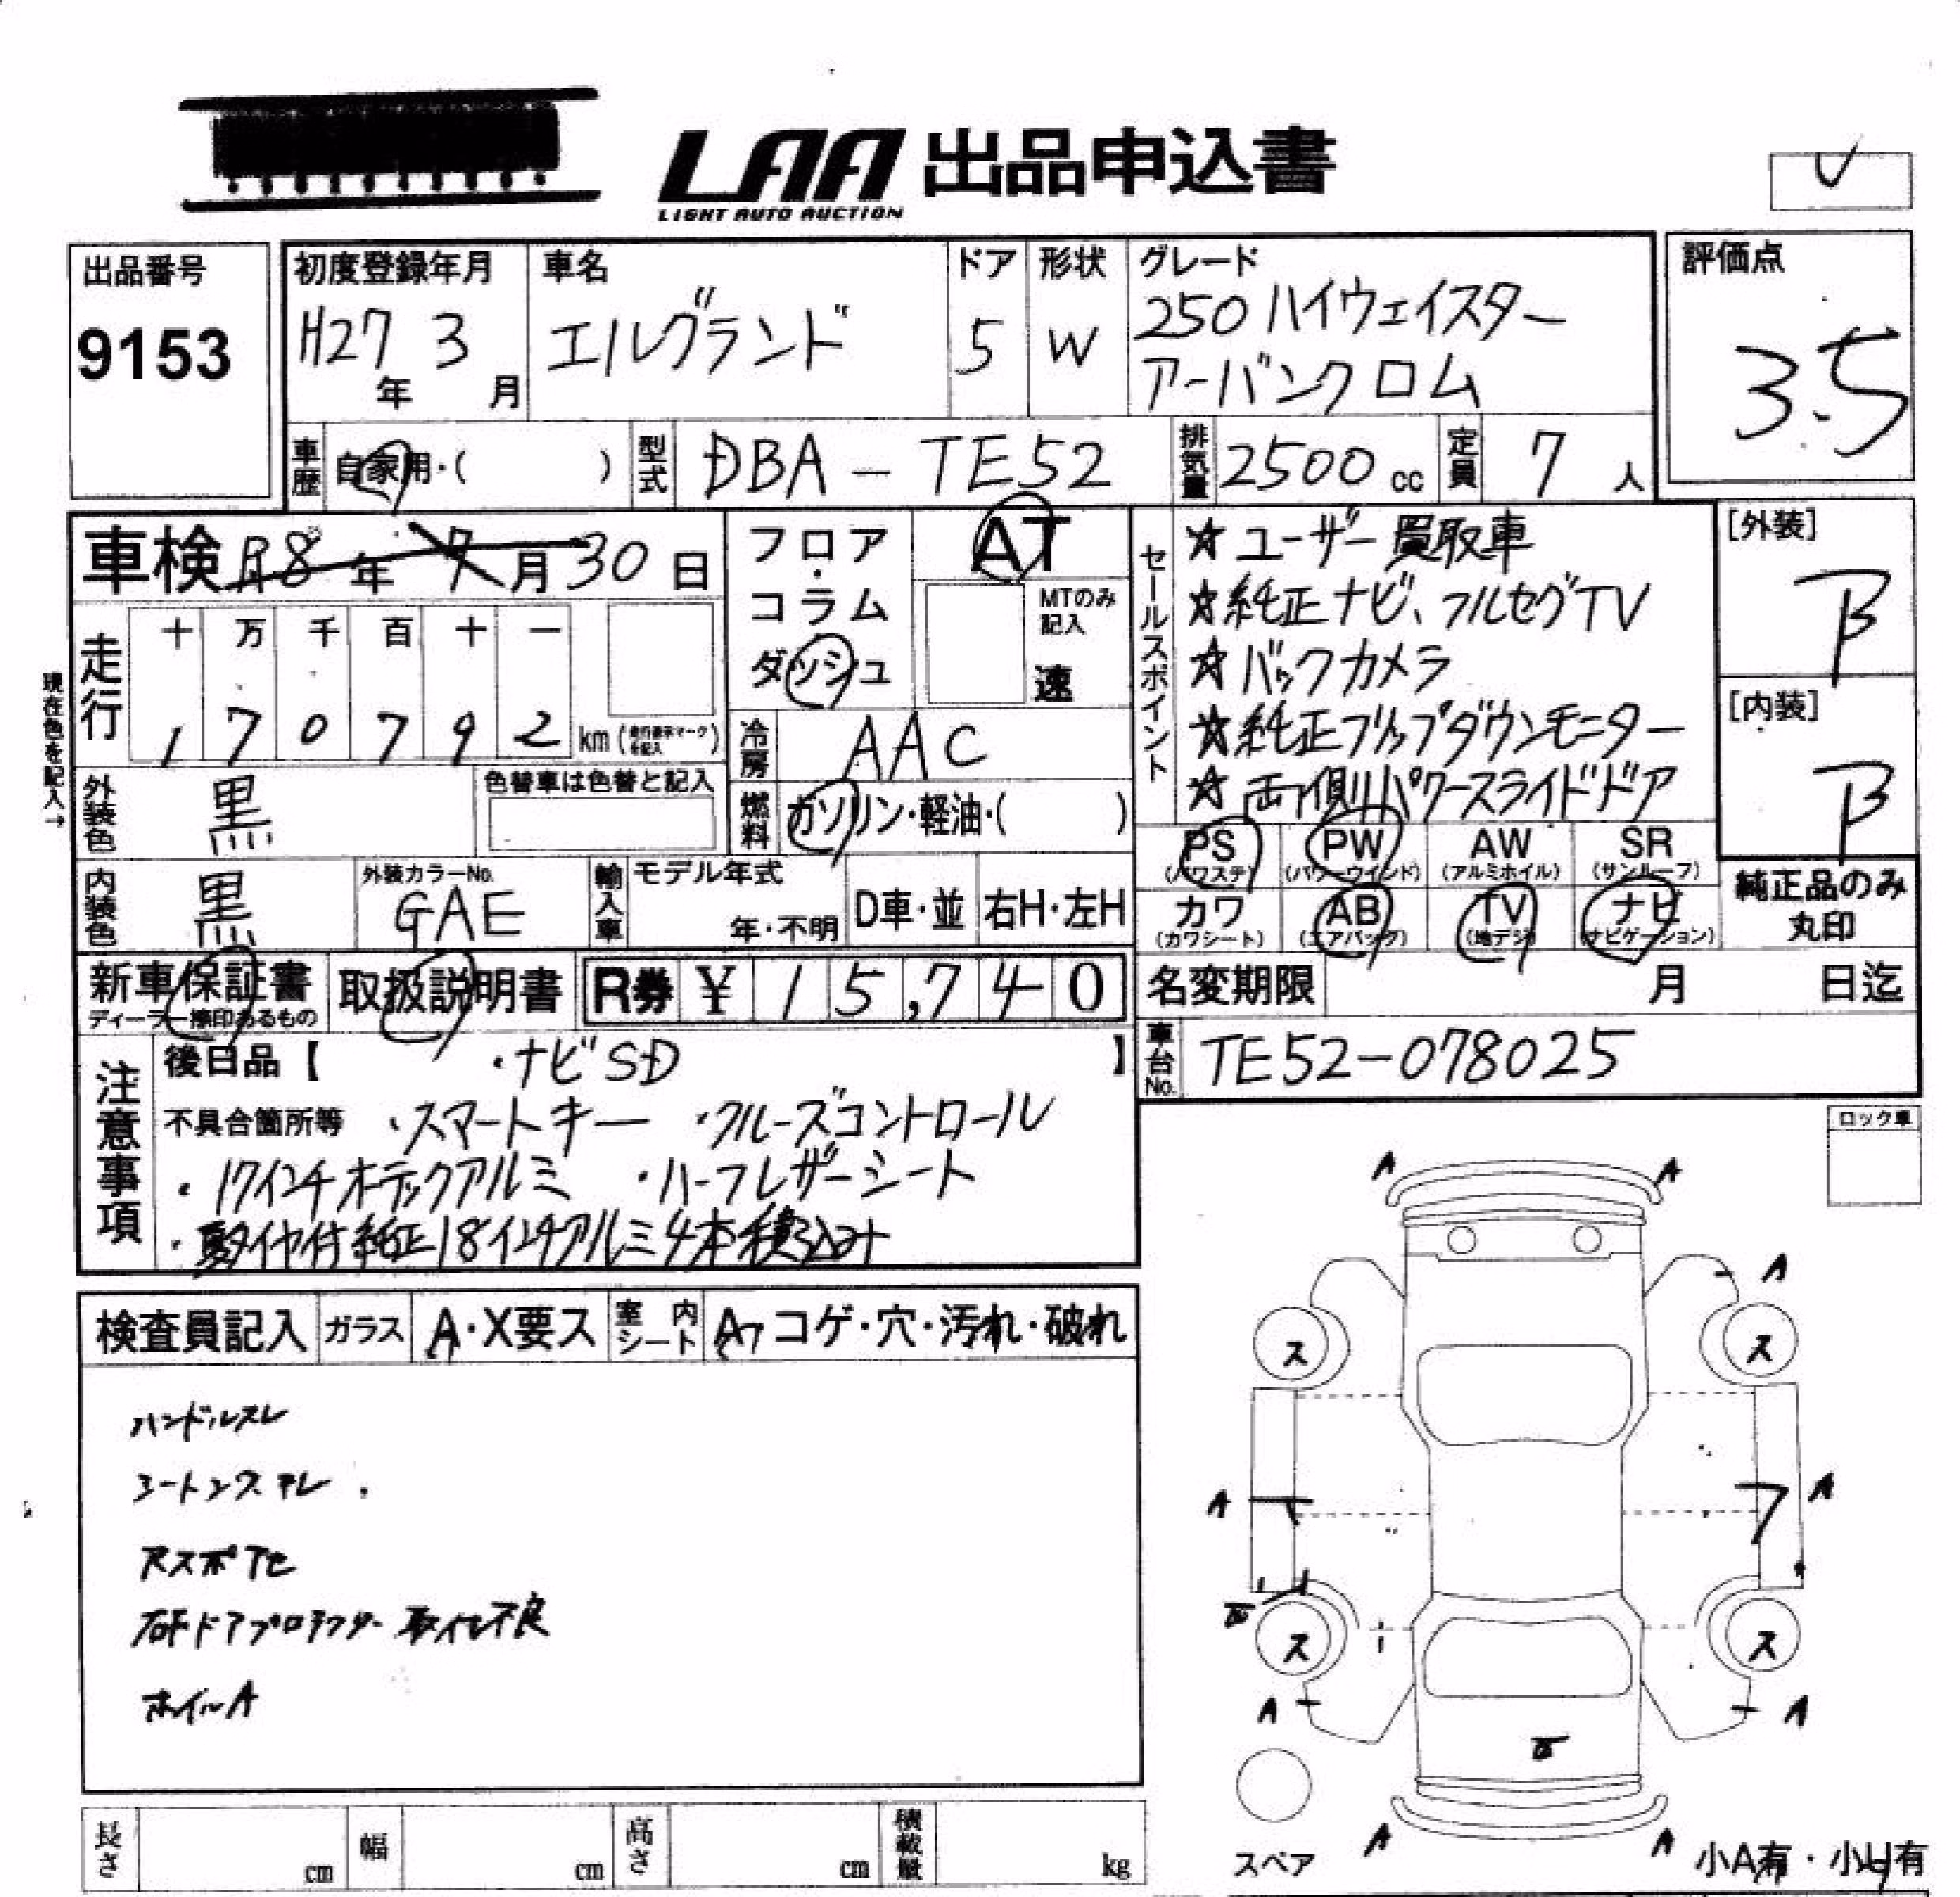 LAA 出品申込書
LIGHT AUTO AUCTION
出品番号
9153
初度登録年月
H27年 3月
車名
エルグランド
ドア
5
形状
W
グレード
250 ハイウェイスター
アーバンクロム
評価点
3.5
車歴 自家用・( )
型式 DBA-TE52
排気量 2500 cc
定員 7 人
車検 R8年 7月 30日
走行
十 万 千 百 十 一
1 7 0 7 9 2 km (走行表示マークを記入)
現在色を記入→
外装色 黒
色替車は色替と記入
内装色 黒
外装カラーNo.
GAE
フロア・コラム
ダッシュ
AT
MTのみ記入
速
冷房 AAC
燃料 ガソリン・軽油・( )
輸入車
モデル年式
年・不明
D車・並
右H・左H
セールスポイント
☆ ユーザー買取車
☆ 純正ナビ、フルセグTV
☆ バックカメラ
☆ 純正フリップダウンモニター
☆ 両側パワースライドドア
[外装]
B
[内装]
B
PS (パワステ)
PW (パワーウインド)
AW (アルミホイル)
SR (サンルーフ)
カワ (カワシート)
AB (エアバック)
TV (地デジ)
ナビ (ナビゲーション)
純正品のみ
丸印
新車保証書
ディーラー捺印あるもの
取扱説明書
R券 ¥ 15,740
名変期限 月 日迄
車台No. TE52-078025
注意事項
後日品【 ・ナビSD 】
不具合箇所等 ・スマートキー ・クルーズコントロール
・17インチオーテックアルミ ・ハーフレザーシート
・夏タイヤ付純正18インチアルミ4本積込み
ロック車
検査員記入
ガラス A・X要ス
室内シート Aクコゲ・穴・汚れ・破れ
ハンドルスレ
シートシワスレ
右ドアプロテクター取付不良
ホイールA
A A
A
ス ス
A A
ス ス
A A
A A
スペア
小A有・小U有
長さ cm
幅 cm
高さ cm
積載量 kg